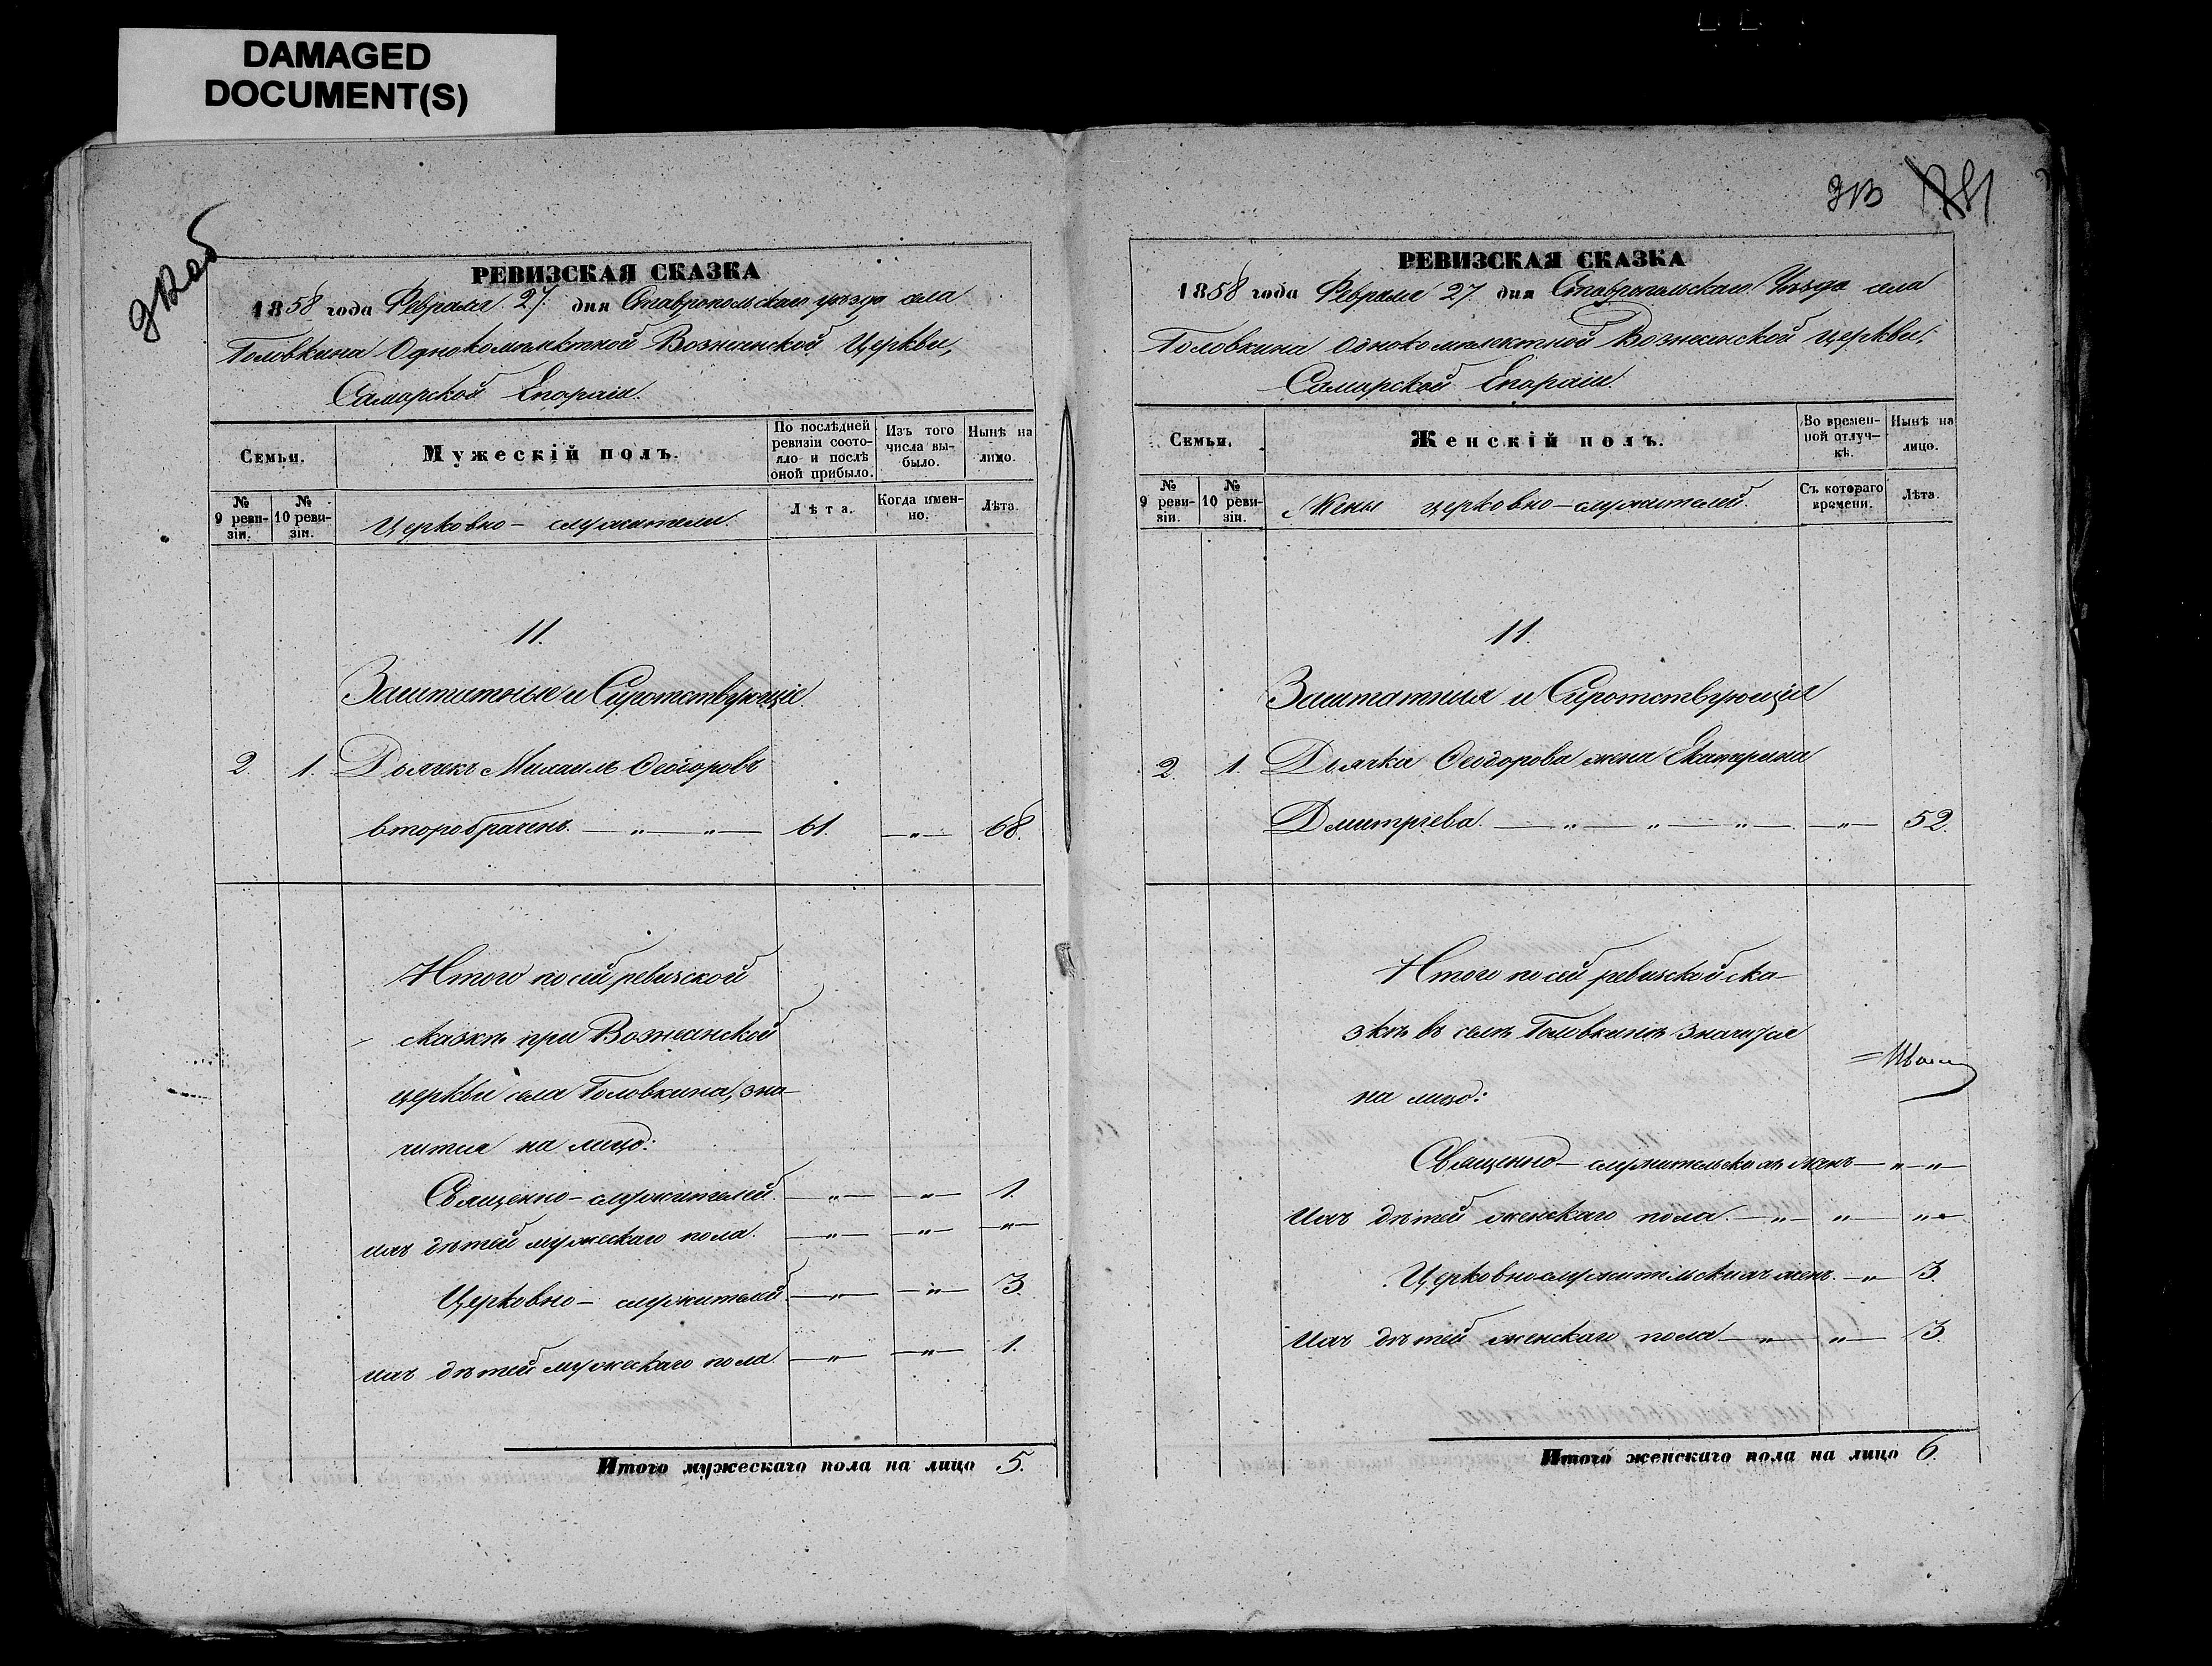 DAMAGED
DOCUMENT(S)
РЕВИЗСКАЯ СКАЗКА
1858 года Февраля 27 дня Ставропольскаго уѣзда села
Головкина Однокомплектной Вознесенской Церкви,
Самарской Епархіи.
Семьи.
Мужескій полъ.
По послѣдней ревизіи состояло и послѣ оной прибыло.
Изъ того числа выбыло.
Нынѣ на лицо.
№ 9 ревизіи.
№ 10 ревизіи.
Церковно-служители.
Лѣта.
Когда именно.
Лѣта.
11.
Заштатные и Сиротствующіе
2. 1. Дьячекъ Михаилъ Ѳеодоровъ
второбраченъ. — " — " — 61. — " — 68.
Итого по сей ревизской
сказкѣ при Вознесенской
церкви села Головкина, зна-
чится на лицо:
Священно-служителей. — " — — " — 1.
ихъ дѣтей мужескаго пола. — " — — " — — " —
Церковно-служителей. — " — — " — 3.
ихъ дѣтей мужескаго пола. — " — — " — 1.
Итого мужескаго пола на лицо 5.
313
РЕВИЗСКАЯ СКАЗКА
1858 года Февраля 27 дня Ставропольскаго Уѣзда села
Головкина Однокомплектной Вознесенской церкви,
Самарской Епархіи.
Семьи.
Женскій полъ.
Во временной отлучкѣ.
Нынѣ на лицо.
№ 9 ревизіи.
№ 10 ревизіи.
Жены церковно-служителей.
Съ котораго времени.
Лѣта.
11.
Заштатныя и Сиротствующія
2. 1. Дьячка Ѳеодорова жена Екатерина
Дмитріева. — " — " — " — — " — 52.
Итого по сей ревизской ска-
зкѣ въ селѣ Головкинѣ значится
на лицо:
Священно-служительскихъ женъ — " — " —
Ихъ дѣтей женскаго пола. — " — " — " —
Церковнослужительскихъ женъ. — " 3.
Ихъ дѣтей женскаго пола — " — " — 3.
Итого женскаго пола на лицо 6.